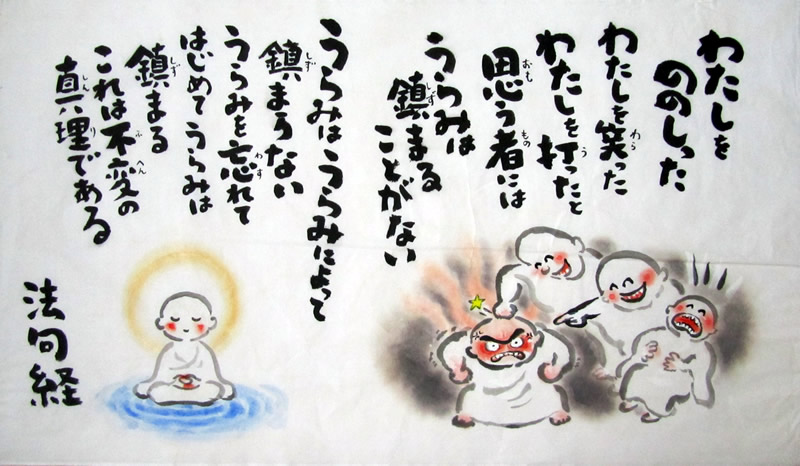 わたしを
ののしった
わたしを笑った
わたしを打ったと
思う者には
うらみは
鎮まる
ことがない
うらみはうらみによって
鎮まらない
うらみを忘れて
はじめてうらみは
鎮まる
これは不変の
真理である
法句経